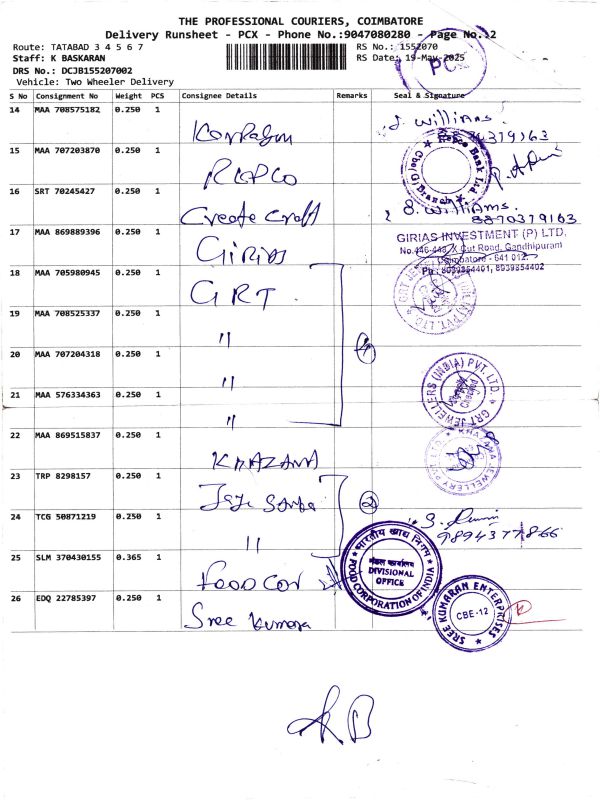 THE PROFESSIONAL COURIERS, COIMBATORE
Delivery Runsheet - PCX - Phone No.:9047080280 - Page No.:2
Route: TATABAD 3 4 5 6 7 RS No.: 1552070
Staff: K BASKARAN RS Date: 19-May-2025
DRS No.: DCJB155207002
Vehicle: Two Wheeler Delivery
S No Consignment No Weight PCS Consignee Details Remarks Seal & Signature
14 MAA 708575182 0.250 1 J. Williams
15 MAA 707203870 0.250 1 REPCO
Repco Bank Ltd. Cbe(G) Branch
16 SRT 70245427 0.250 1 Create Craft S. Williams. 8870379163
17 MAA 869889396 0.250 1 GIRIAS
GIRIAS INVESTMENT (P) LTD.
No.446-448, X Cut Road, Gandhipuram
Coimbatore - 641 012.
Ph : 8939854401, 8939854402
18 MAA 705980945 0.250 1 GRT
19 MAA 708525337 0.250 1 "
20 MAA 707204318 0.250 1 " 4
GRT JEWELLERS (INDIA) PVT. LTD.
21 MAA 576334363 0.250 1 "
22 MAA 869515837 0.250 1 KHAZANA
KHAZANA JEWELLERY PVT. LTD.
23 TRP 8298157 0.250 1 2
24 TCG 50871219 0.250 1 " 9894377866
25 SLM 370430155 0.365 1 Food Cor
भारतीय खाद्य निगम
मंडल कार्यालय
DIVISIONAL
OFFICE
FOOD CORPORATION OF INDIA
26 EDQ 22785397 0.250 1 Sree Kumara
SREE KUMARAN ENTERPRISES
CBE-12
KB